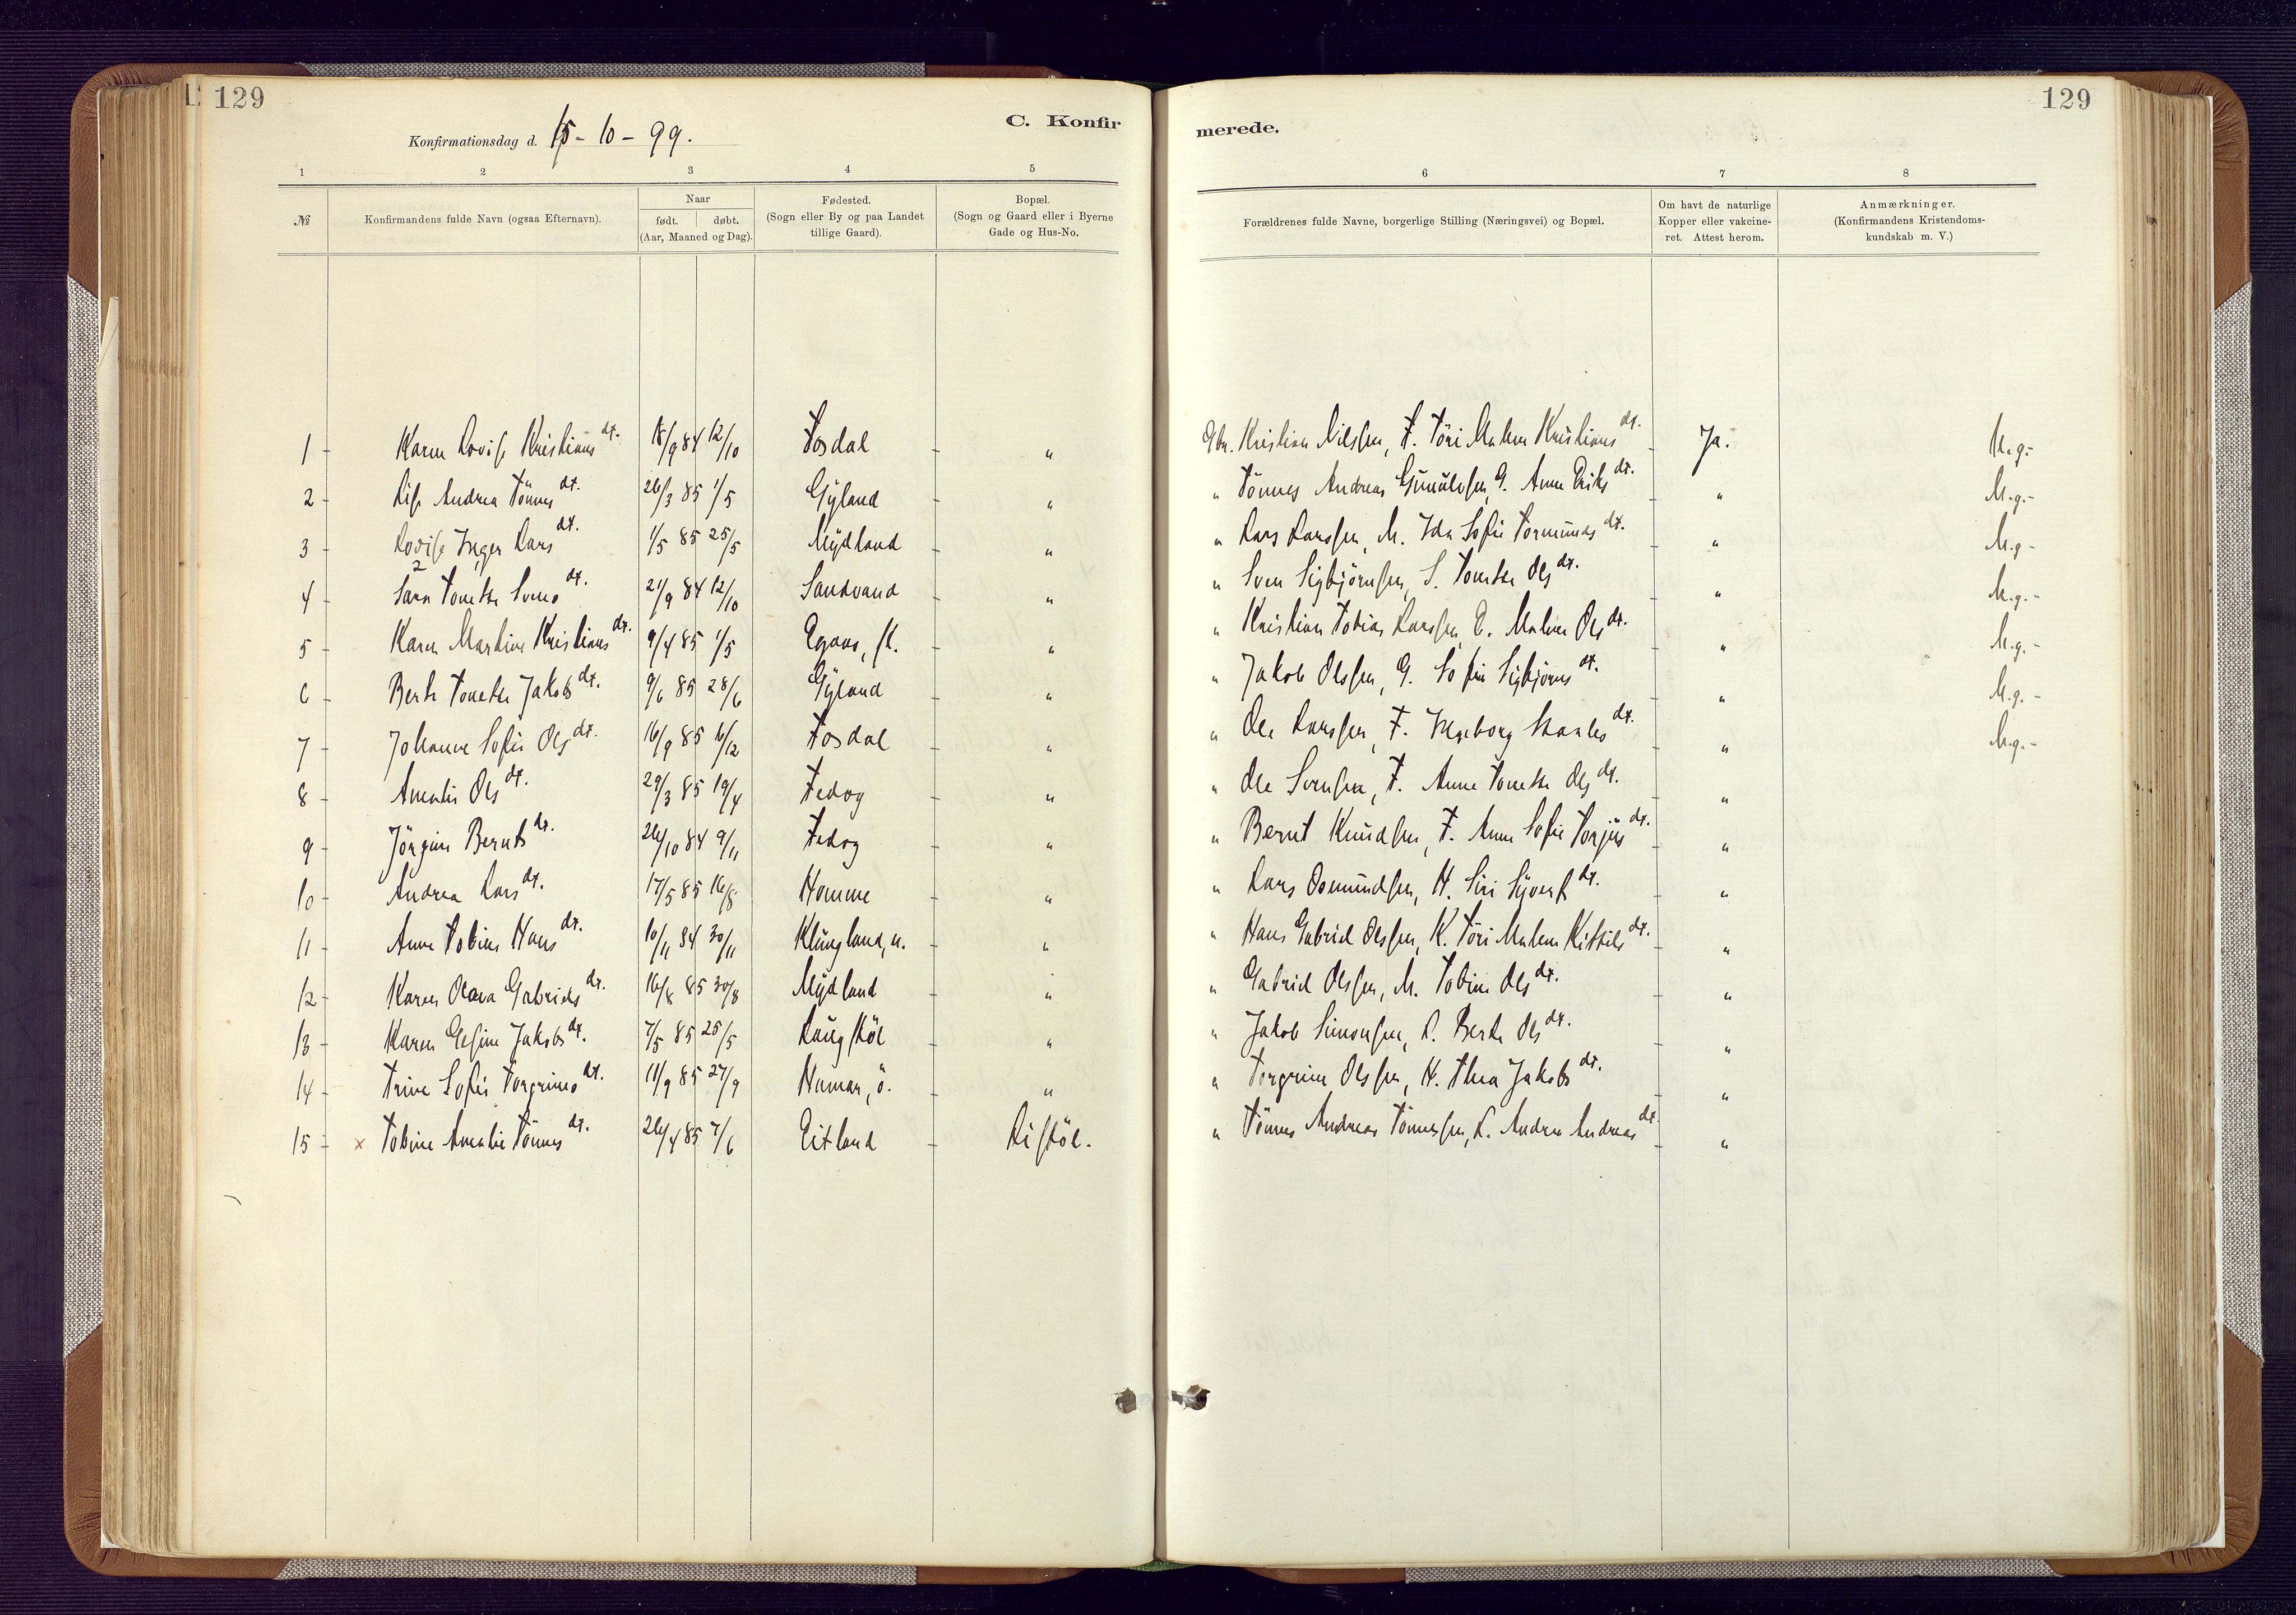 129
C. Konfir
Konfirmationsdag d. 15-10-99.
1 2 3 4 5
№ Konfirmandens fulde Navn (ogsaa Efternavn). Naar født. døbt. (Aar, Maaned og Dag). Fødested. (Sogn eller By og paa Landet tillige Gaard). Bopæl. (Sogn og Gaard eller i Byerne Gade og Hus-No.
1 - Karen Lovise Kristians dt. 18/9 84 12/10 Fosdal - "
2 - Lise Andrea Tönnes dt. 26/3 85 1/5 Gyland - "
3 - Lovise Inger Lars dt. 1/5 85 25/5 Mydland - "
4 - Sara Tonette Svens dt. 21/9 84 12/10 Sandvand - "
5 - Karen Martine Kristians dt. 9/4 85 1/5 Egaas, st. - "
6 - Berte Tonette Jakobs dt. 9/6 85 28/6 Gyland - "
7 - Johanne Sofie Ols dt. 16/9 85 6/12 Fosdal - "
8 - Amalie Ols dt. 29/3 85 19/4 Fedog - "
9 - Jörgine Bernts dt. 26/10 84 9/11 Fedog - "
10 - Andrea Lars dt. 17/5 85 16/8 Homme - "
11 - Anne Tobine Hans dt. 10/11 84 30/11 Klungland, n. - "
12 - Karen Olava Gabriels dt. 16/8 85 30/8 Mydland - "
13 - Karen Gesine Jakobs dt. 7/5 85 25/5 Laugstöl - "
14 - Trine Sofie Torgrims dt. 11/9 85 27/9 Humar, ö. - "
15 - x Tobine Amalie Tönnes dt. 26/4 85 7/6 Eitland - Listöl.
129
merede.
6 7 8
Forældrenes fulde Navne, borgerlige Stilling (Næringsvei) og Bopæl. Om havt de naturlige Kopper eller vakcineret. Attest herom. Anmærkninger. (Konfirmandens Kristendomskundskab m. V.)
Gbr. Kristian Nilssen, F. Töri Malene Kristians dt. - Ja. M.g.-
" Tönnes Andreas Gunuldsen, G. Anne Eriks dt. - " M.g.-
" Lars Larssen, M. Ida Sofie Tormunds dt. - " M.g-
" Sven Sigbjörnsen, S. Tonette Ols dt. - " M.g.-
" Kristian Tobias Larssen, E. Malene Ols dt. - " M.g.-
" Jakob Olssen, G. Sofie Sigbjörns dt. - " M.g.-
" Ole Larssen, F. Ingeborg dt. - " M.g.-
" Ole Svensen, F. Anne Tonette Ols dt. - "
" Bernt Knudsen, F. Anne Sofie Torjus dt. - "
" Lars Osmundsen, H. Siri Syverts dt. - "
" Hans Gabriel Olssen, K. Töri Malene Kittils dt. - "
" Gabriel Olssen, M. Tobine Ols dt. - "
" Jakob Simonsen, L. Berte Ols dt. - "
" Torgrim Olssen, H. Thea Jakobs dt. - "
" Tönnes Andreas Tönnessen, L. Andrea Andreas dt. - "